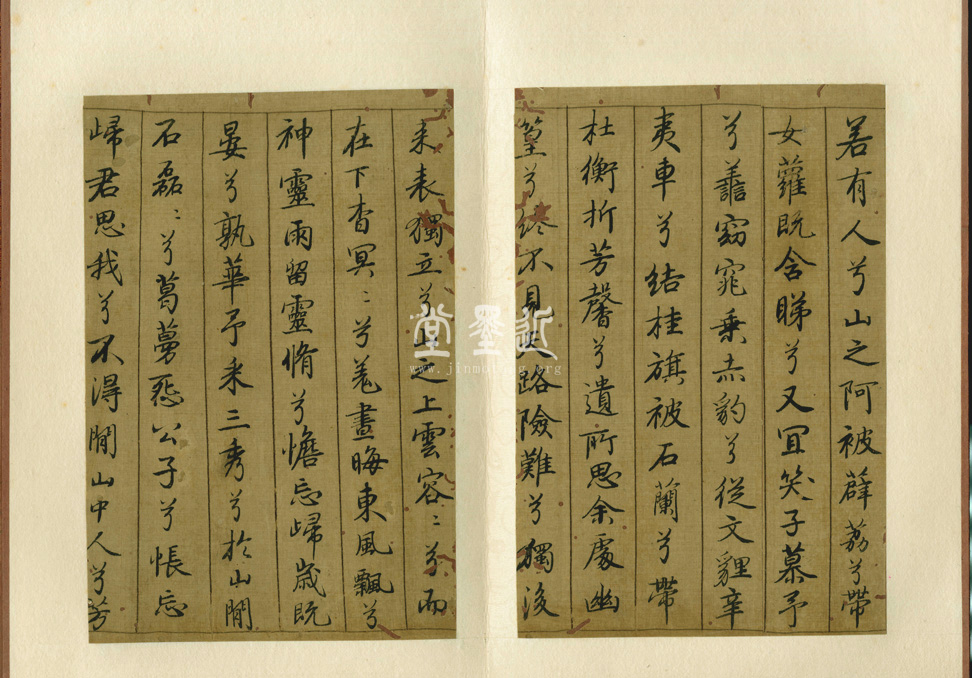 若有人兮山之阿被薜荔兮帶
女蘿既含睇兮又宜笑子慕予
兮譱窈窕乗赤豹兮從文貍辛
夷車兮結桂旗被石蘭兮帶
杜衡折芳馨兮遺所思余處幽
篁兮終不見天路險難兮獨後
来表獨立兮山之上雲容〻兮而
在下杳冥〻兮羌晝晦東風飄兮
神靈雨留靈脩兮憺忘歸歲既
晏兮孰華予采三秀兮於山間
石磊〻兮葛蔓怨公子兮悵忘
歸君思我兮不得閒山中人兮芳
近墨堂
www.jinmotang.org